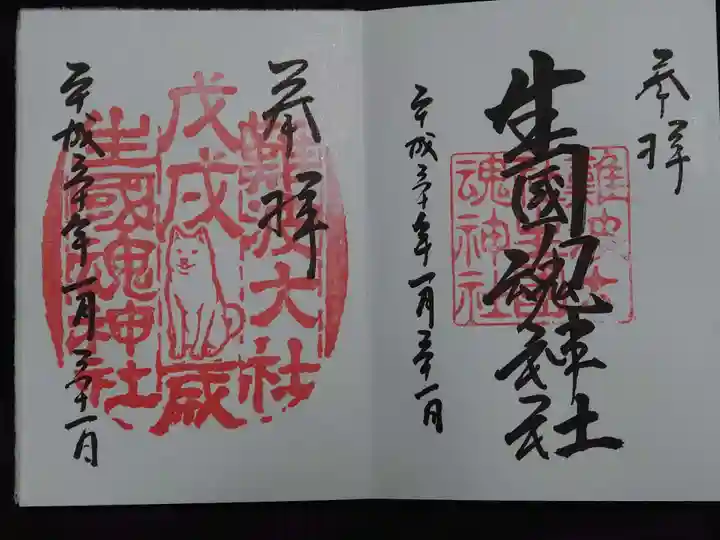 奉拝
生國魂神社
平成三十年一月三十一日
難波大社
生國魂神社
奉拝
難波大社
戊戌
歳
生國魂神社
平成三十年一月三十一日